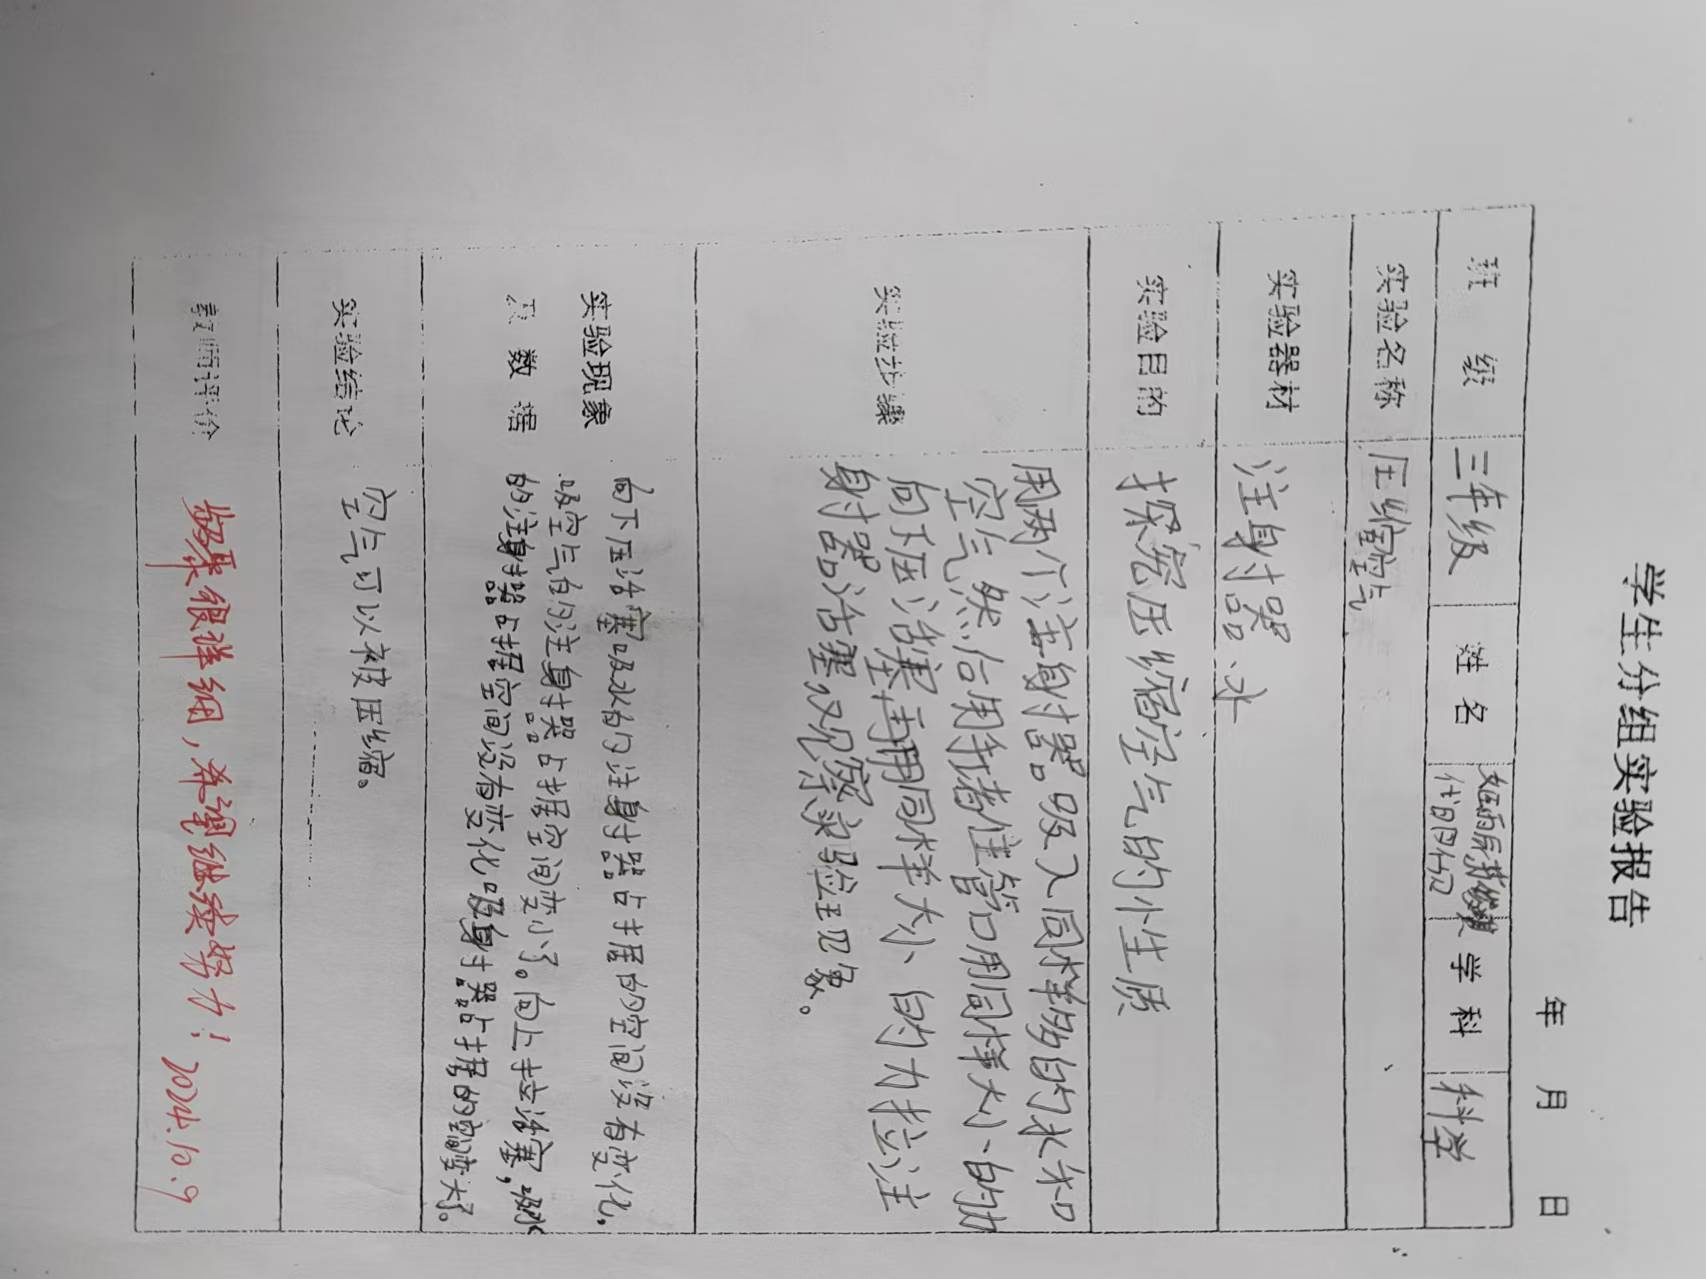 学生分组实验报告
年 月 日
班 级 三年级 姓 名 学 科 科学
实验名称 压缩空气
实验器材 注射器、水
实验目的 探究压缩空气的小性质
实验步骤
用两个注射器吸入同样多的水和
空气然后用手堵住管口用同样大小的力
向下压活塞再用同样大小的力拉注
射器活塞观察实验现象。
实验现象
及 数 据
向下压活塞吸水的注射器占据的空间没有变化,
吸空气的注射器占据空间变小了。向上拉活塞,吸水
的注射器占据空间没有变化吸 射器占据的空间变大了。
实验结论 空气可以被压缩。
教师评价 步骤很详细,希望继续努力! 2024.10.9